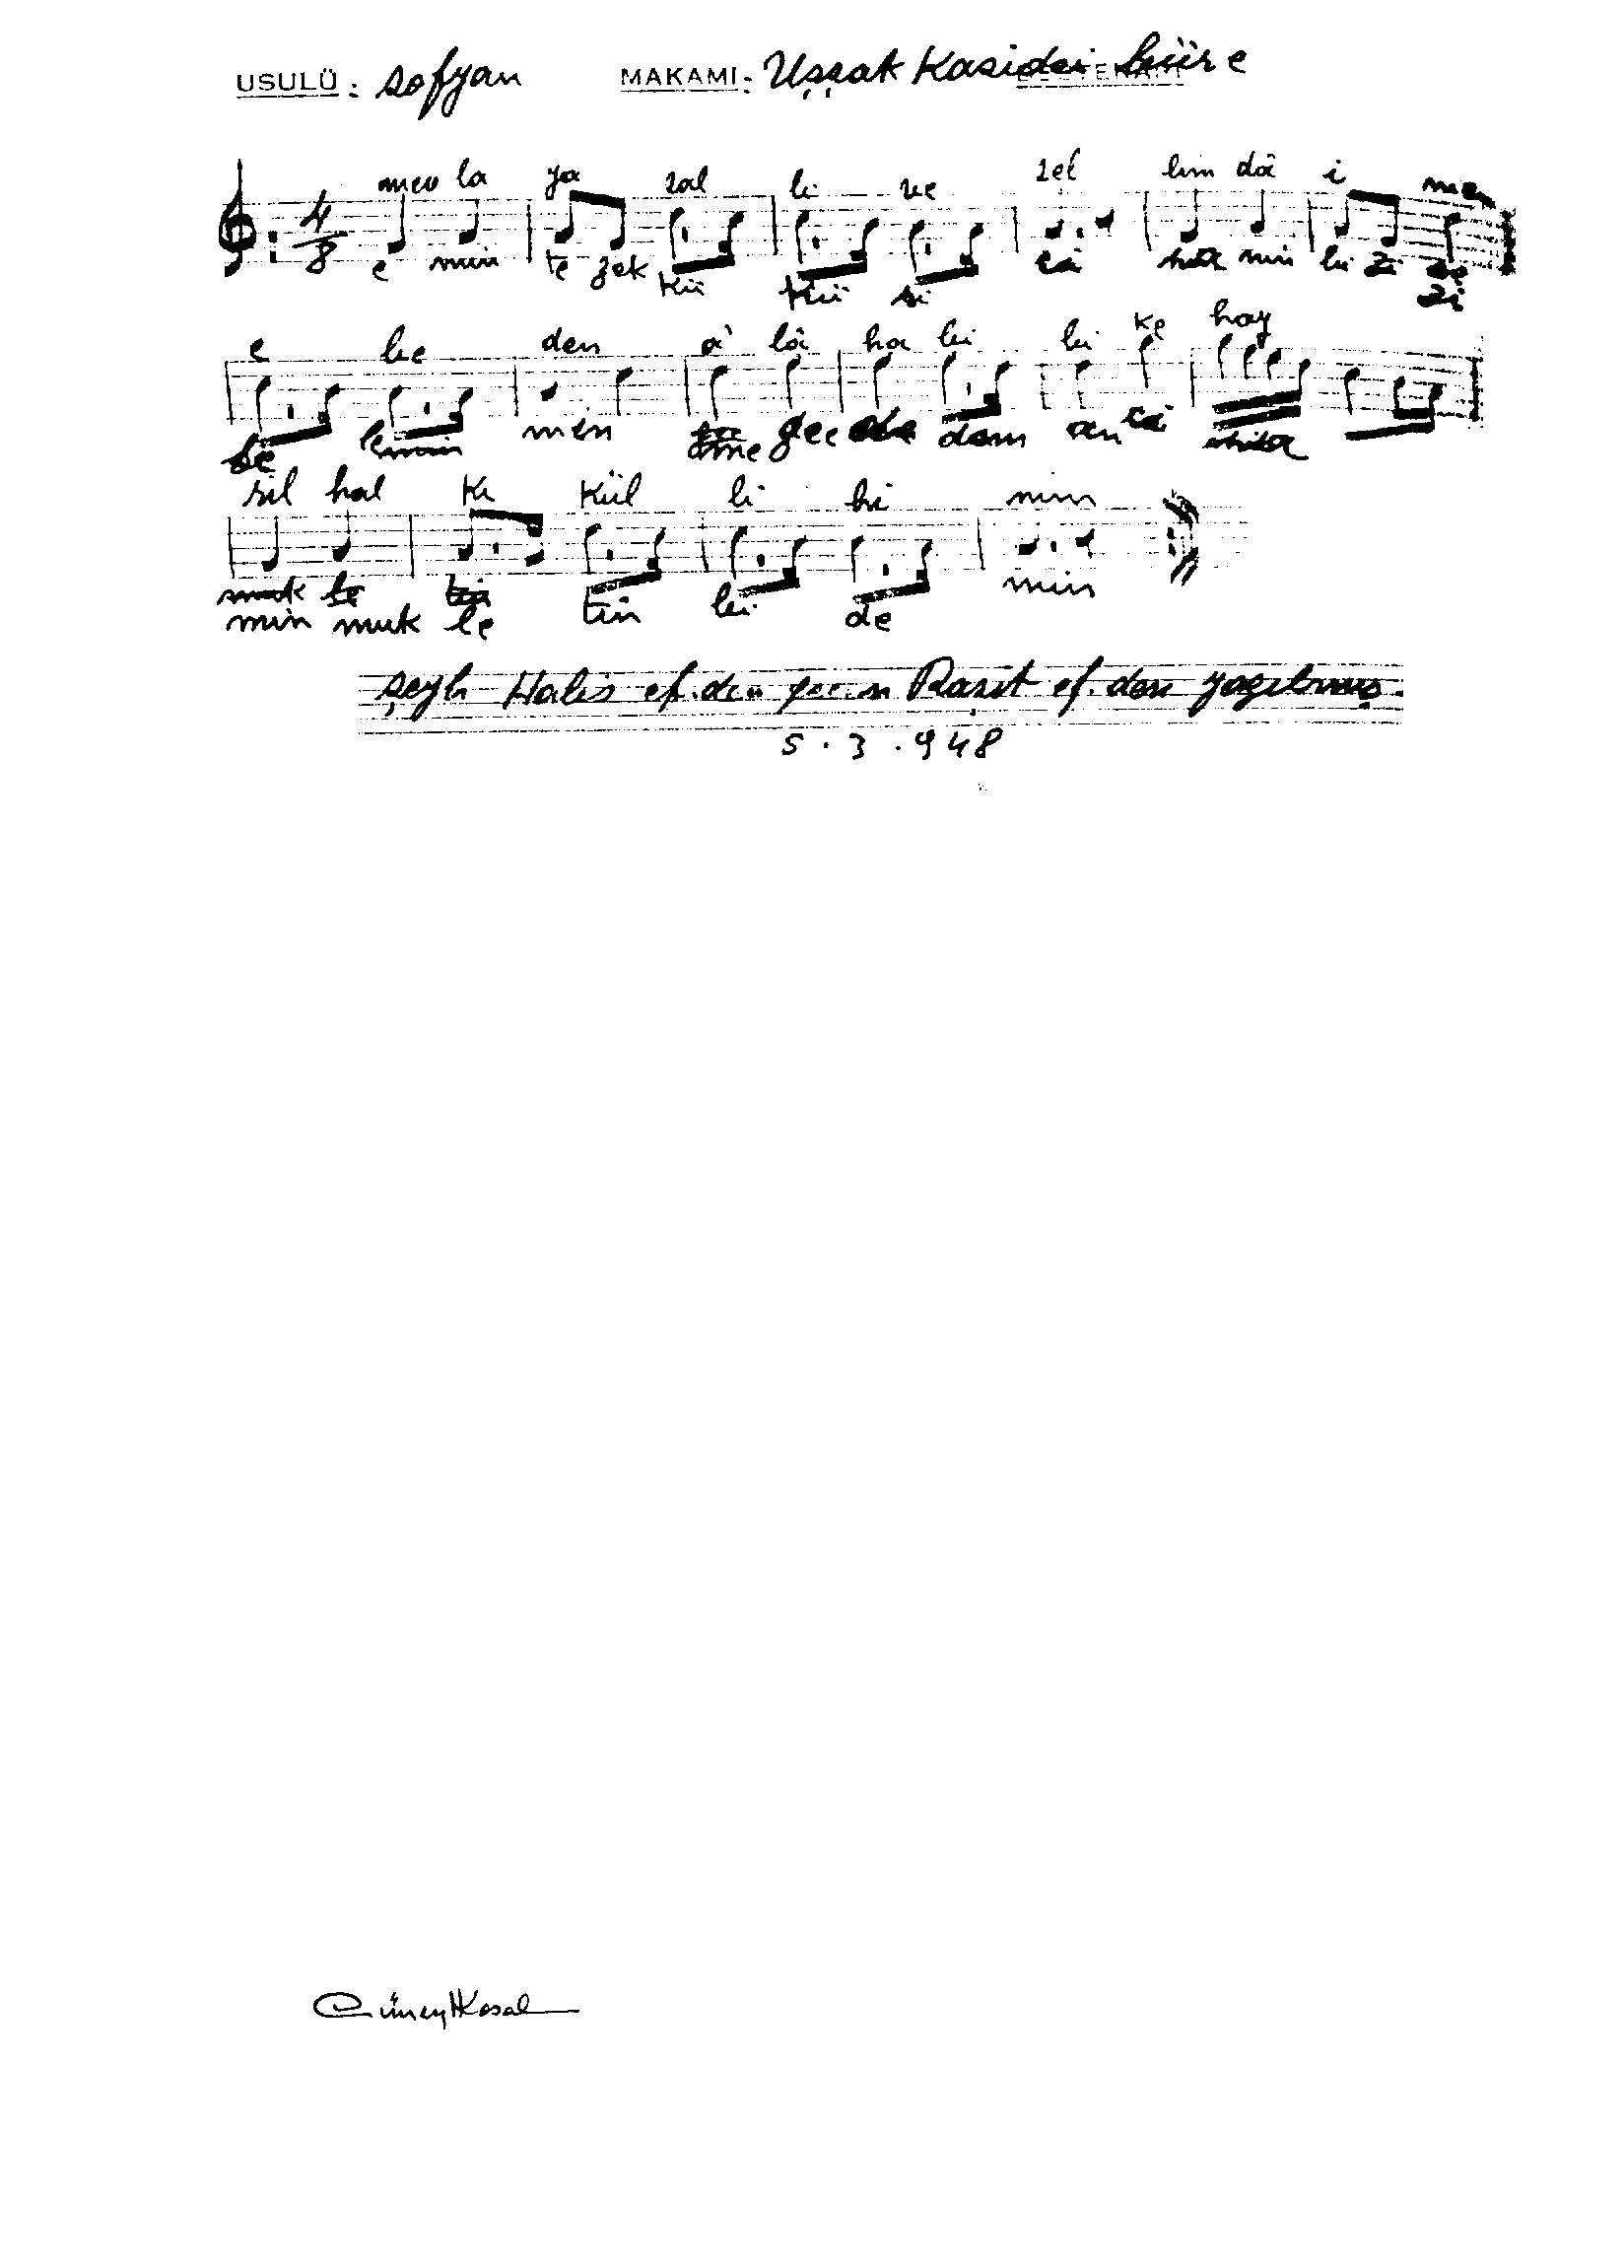 USULÜ : sofyan MAKAMI : Uşşak Kasidei bür e
4/8
mev la ya sal li ve sel lim dâ i men
e min te zek kü si câ nin bi zi
zi
e be den a' lâ ha bi bi ke hay
lemin min me dem an câ
ril hal ki kül li hi mim
muk te
min muk le tin bi de min
Şeyh Halis ef. den geçen Raşit ef. den yazılmış.
5.3.948
Cüneyt Kosal